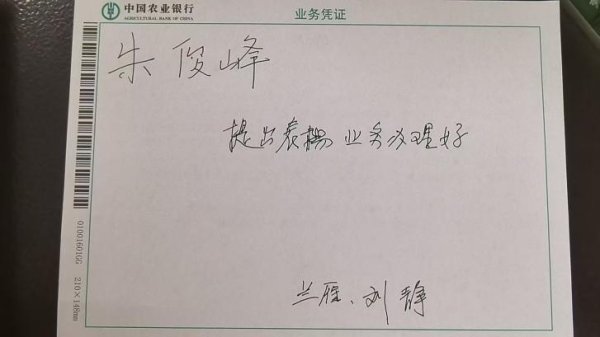 中国农业银行
AGRICULTURAL BANK OF CHINA
业务凭证
朱俊峰
提出表扬 业务办理好
兰雁、刘静
010016010G
210×148mm